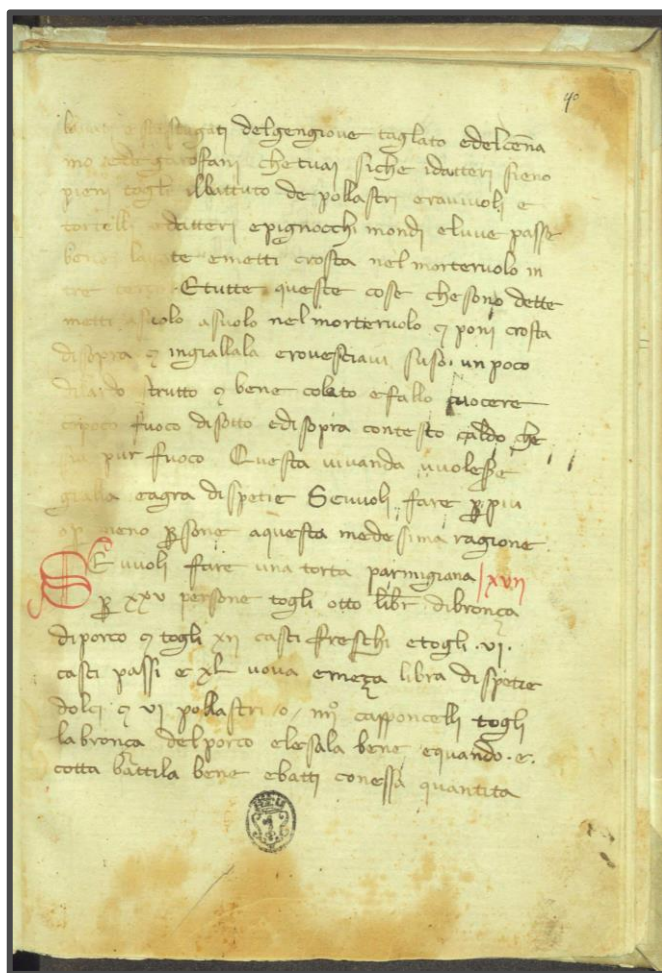 40
del gengiove taglato e del cena
mo e de garofani che tu ai siche i datteri sieno
pieni togli il battuto de pollastri e raviuoli e
tortelli e datteri e pignocchi mondi e l uve passe
bene lavate e metti crosta nel morteruolo in
E tutte queste cose che sono dette
metti a suolo a suolo nel morteruolo 7 poni crosta
di sopra 7 ingiallala e rovesciavi suso un poco
di lardo strutto 7 bene colato e fallo cuocere
fuoco di sotto e di sopra con testo caldo che
pur fuoco Questa vivanda vuolessere
gialla e agra di spetie Se vuoli fare ꝑ piu
meno ꝑsone a questa medesima ragione
SE vuoli fare una torta parmigiana xvii
ꝑ xxv persone togli otto libr di bronça
di porco 7 togli xii casci freschi e togli .vi.
casci passi e xl uova e meça libra di spetie
dolci 7 vi pollastri /o/ iiijº capponcelli togli
la bronça del porco e lesala bene e quando .e.
cotta battila bene e batti con essa quantita